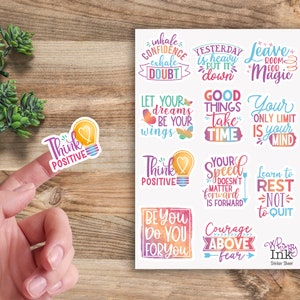 inhale
CONFIDENCE
exhale
DOUBT
YESTERDAY
is heavy
PUT IT
down
Leave
ROOM FOR
Magic
LET YOUR
dreams
BE YOUR
wings
GOOD
THINGS
Take
TIME
Your
ONLY LIMIT
IS YOUR
MIND
Think
POSITIVE
Think
POSITIVE
YOUR
Speed
DOESN'T
MATTER
forward
IS FORWARD
Learn to
REST
NOT
to QUIT
BE YOU
DO YOU
FOR YOU
Courage
ABOVE
fear
Ink
Sticker Sheet